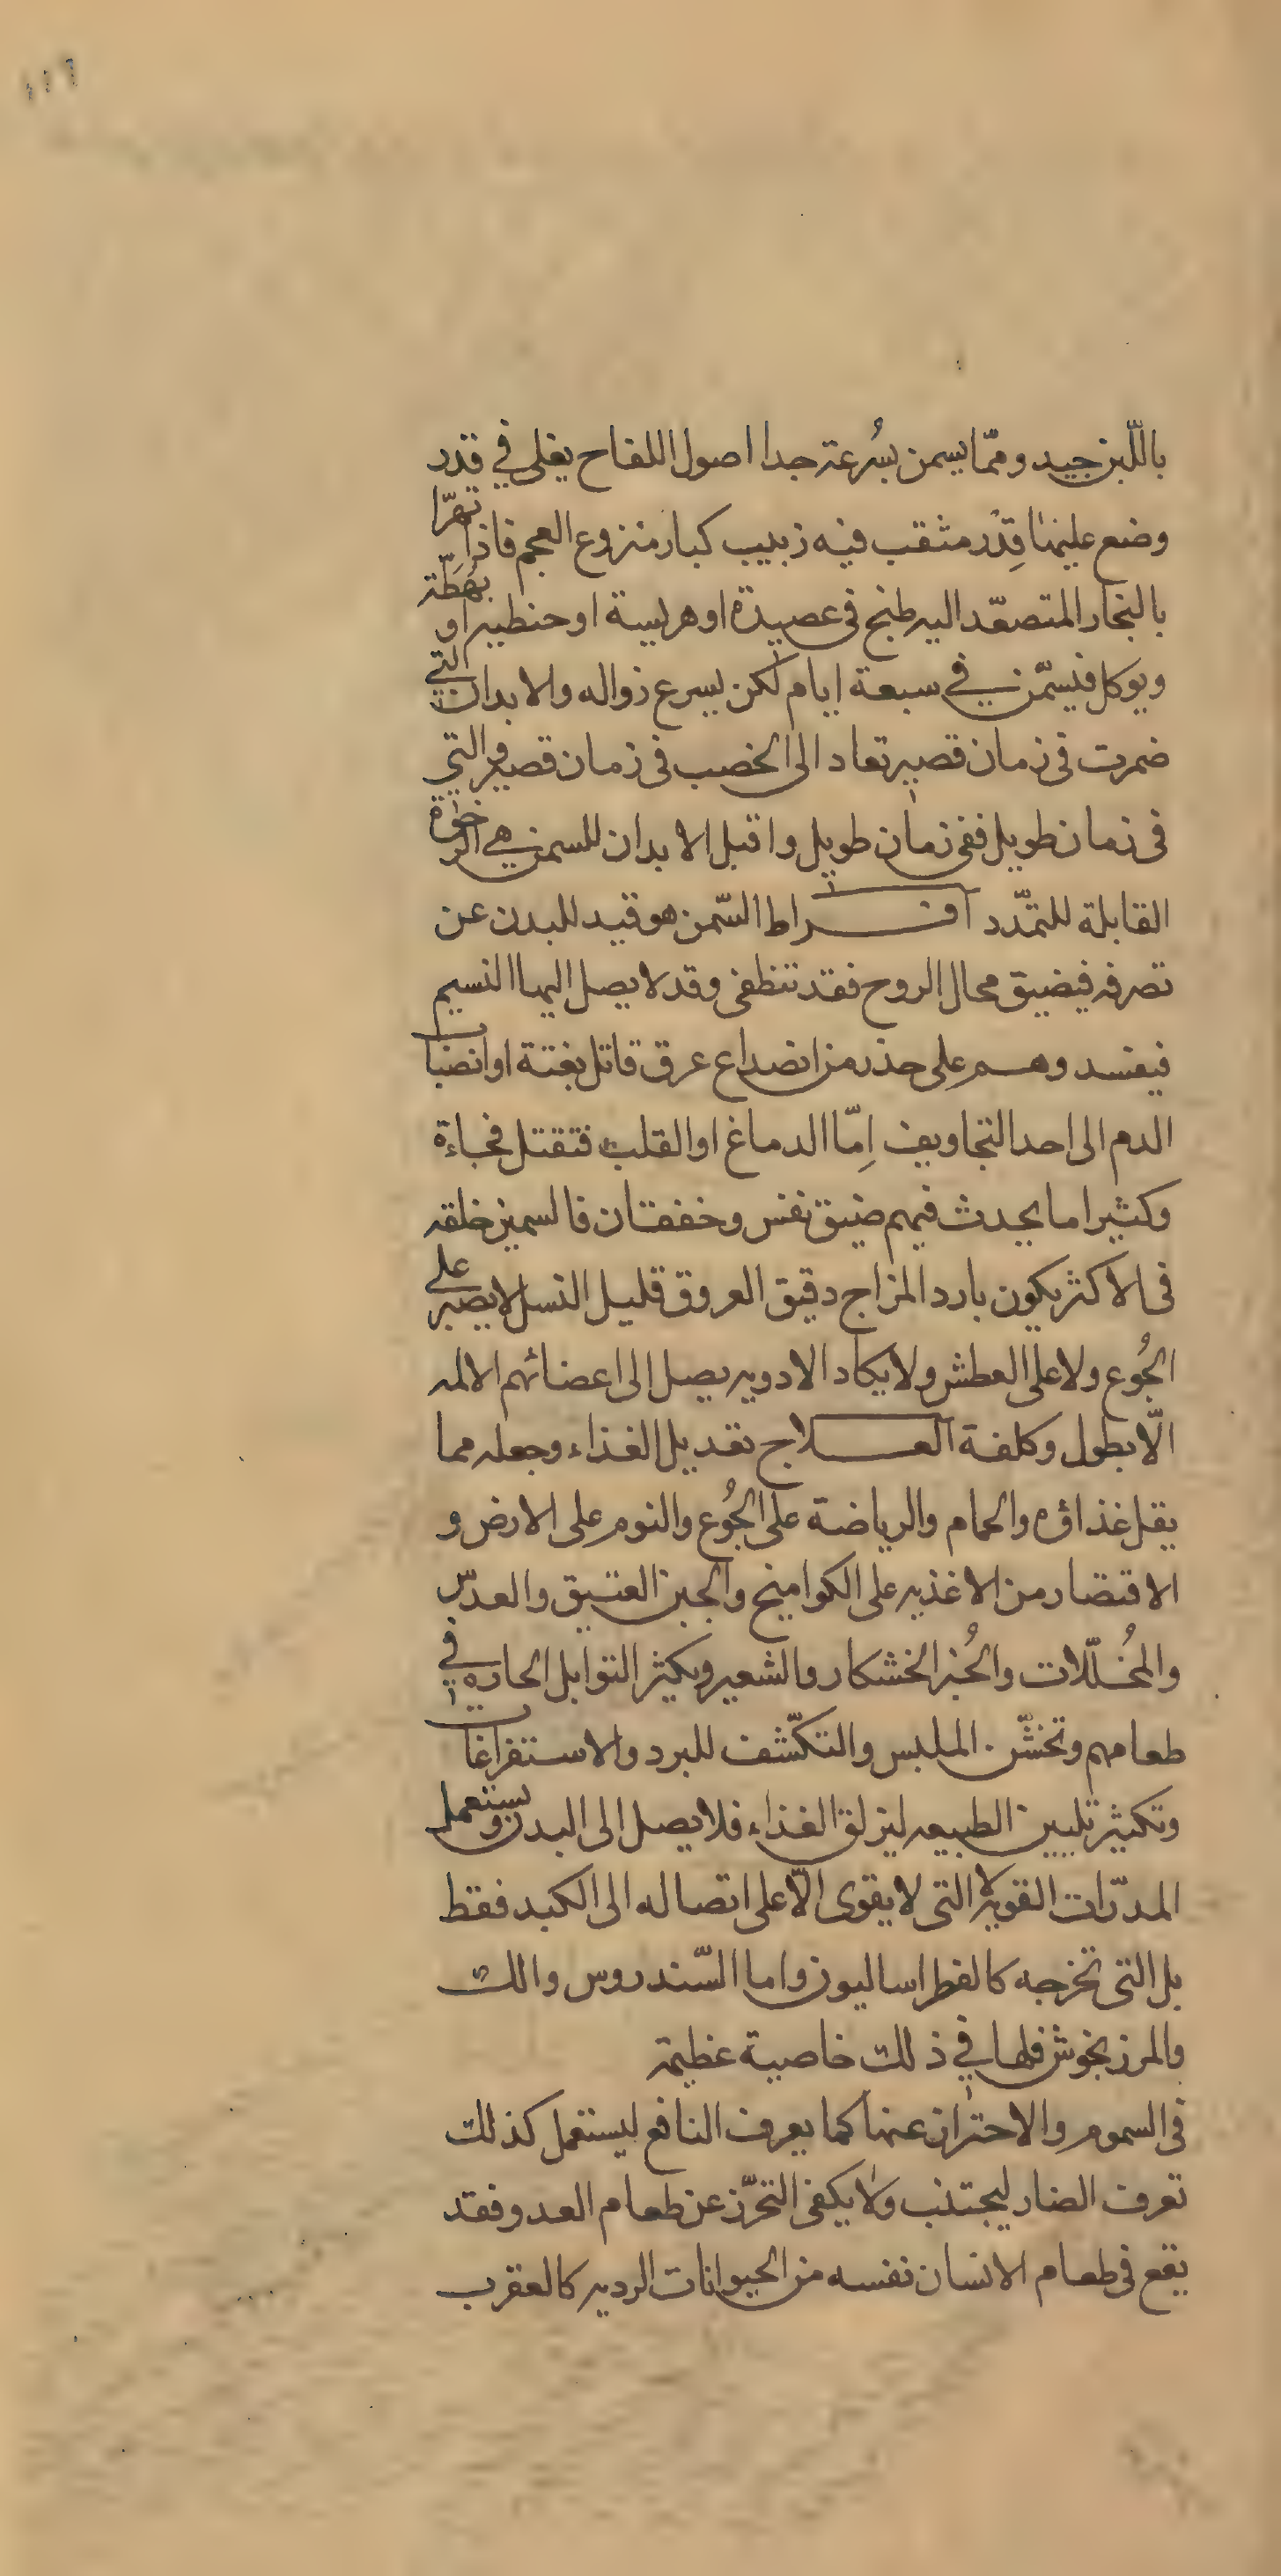 ١١٦
باللّبن جيد وممّا يسمن بسُرعة جدا اصول اللفاح يغلى في قدر
وضع عليها قِدْر مثقب فيه زبيب كبار منزوع العجم فاذا تهرّا
بالبخار المتصعّد اليه طبخ فى عصيدة او هريسة او حنطيه او بَهَطّة
ويوكل فيسمّن في سبعة ايام لكن يسرع زواله والابدان التي
ضمرت فى زمان قصير تعاد الى الخصب فى زمان قصير والتي
فى زمان طويل ففى زمان طويل واقبل الابدان للسمن هي الرخوة
القابلة للتمدّد افراط السّمن هو قيد للبدن عن
تصرفه فيضيق مجال الروح فقد تنطفى وقد لا يصل اليها النسيم
فيفسد وهم على حذر من انصداع عرق قاتل بغتة او انصباب
الدم الى احد التجاويف اِمّا الدماغ او القلب فتقتل فجاءة
وكثيرا ما يحدث فيهم ضيق نفس وخفقان فالسمين خلقه
فى الاكثر يكون بارد المزاج دقيق العروق قليل النسل لا يصبر على
الجُوع ولا على العطش ولا يكاد الادويه يصل الى اعضائهم الالمه
الّا بطول وكلفة العلاج تعديل الغذاء وجعله مما
يقل غذاؤه والحمام والرياضة على الجُوع والنوم على الارض و
الاقتصار من الاغذيه على الكواميخ والجبن العتيق والعدس
والمخُلّلات والخُبز الخشكار والشعير ويكثر التوابل الحاره في
طعامهم وتخشّن الملبس والتكشّف للبرد والاستفراغات
وتكثير تليين الطبيعه ليزلق الغذاء فلا يصل الى البدن ويستعمل
المدرّات القوية التى لا يقوى الّا على اتصاله الى الكبد فقط
بل التى تخرجه كالفطراساليون واما السّندروس واللك
والمرزنجوش فلها في ذلك خاصية عظيمة
فى السموم والاحتراز عنها كما يعرف النافع ليستعمل كذلك
تعرف الضار ليجتنب ولا يكفى التحرّز عن طعام العدو فقد
يقع فى طعام الانسان نفسه من الحيوانات الرديه كالعقرب